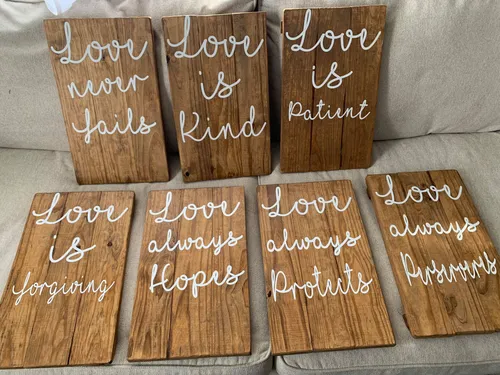 Love
never
fails
Love
is
Kind
Love
is
Patient
Love
is
forgiving
Love
always
Hopes
Love
always
Protects
Love
always
Perseveres